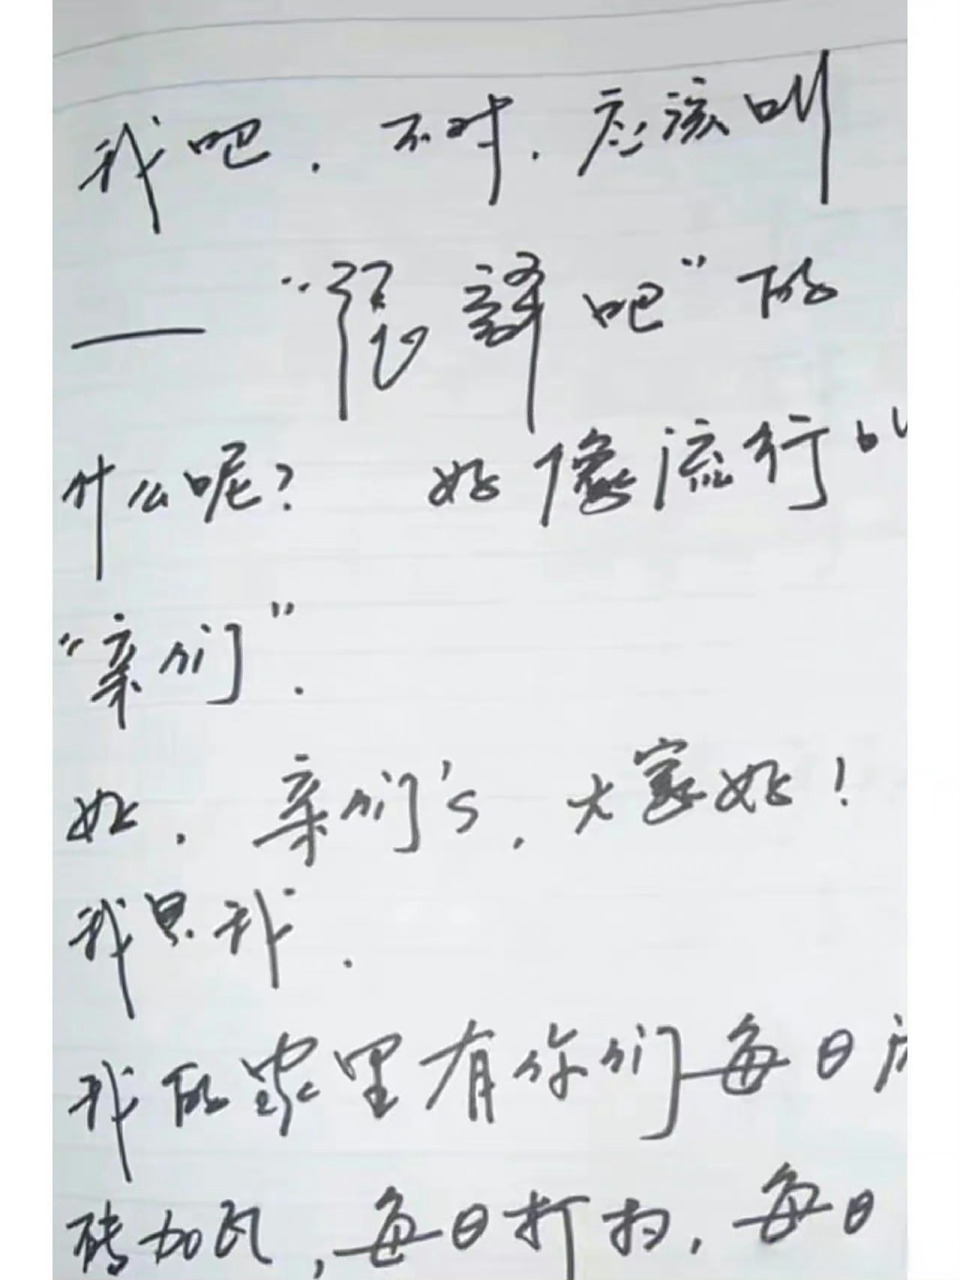 我吧，不对，应该叫
——“张译吧”的
什么呢？ 好像流行的
“亲们”．
好．亲们's，大家好！
我是我．
我的家里有你们每日
砖加瓦，每日打扫，每日